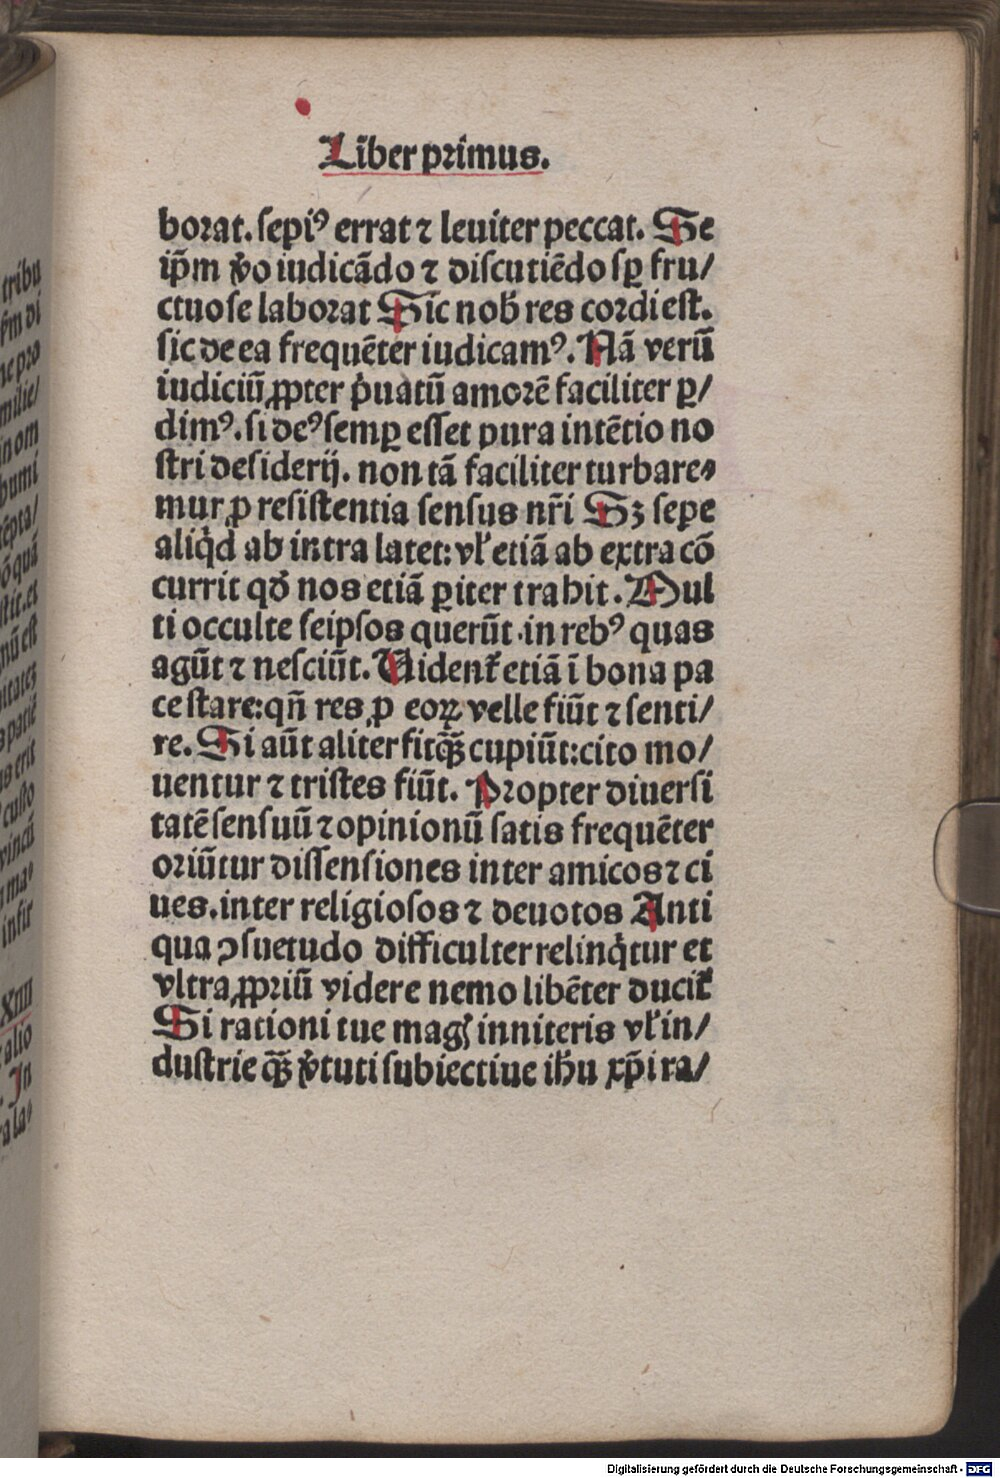 Liber primus.
borat. sepiꝰ errat ⁊ leuiter peccat. Se
ip̄m v̓o iudicādo ⁊ discutiēdo sꝑ fru/
ctuose laborat Sic nob̄ res cordi est.
sic de ea frequēter iudicamꝰ. Nā verū
iudiciū ꝓpter p̓uatū amorē faciliter ꝑ/
dimꝰ. si deꝰ semꝑ esset pura intētio no
stri desiderij. non tā faciliter turbare⸗
mur ꝓ resistentia sensus nr̄i Sꝫ sepe
aliq̓d ab intra latet: vl̓ etiā ab extra cō
currit qd̓ nos etiā ꝑiter trahit. Mul
ti occulte seipsos querūt in rebꝰ quas
agūt ⁊ nesciūt. Uident̓ etiā ī bona pa
ce stare: qn̄ res ꝓ eoꝝ velle fiūt ⁊ senti/
re. Si aūt aliter fit qꝫ̄ cupiūt: cito mo/
uentur ⁊ tristes fiūt. Propter diuersi
tatē sensuū ⁊ opinionū satis frequēter
oriūtur dissensiones inter amicos ⁊ ci
ues. inter religiosos ⁊ deuotos Anti
qua ꝯsuetudo difficulter relinq̓tur et
vltra ꝓpriū videre nemo libēter ducit̓
Si rationi tue magꝭ inniteris vl̓ in/
dustrie qꝫ̄ v̓tuti subiectiue ih̄u xp̄i ra/
tribu
p̄m di
ne pro
milie/
in om
humi
tēpta/
quā
stit. et
nū est
patiē
us erit
custo
vincū
ma⸗
insir
XIIII
alio
. In
ra la⸗
Digitalisierung gefördert durch die Deutsche Forschungsgemeinschaft - DFG